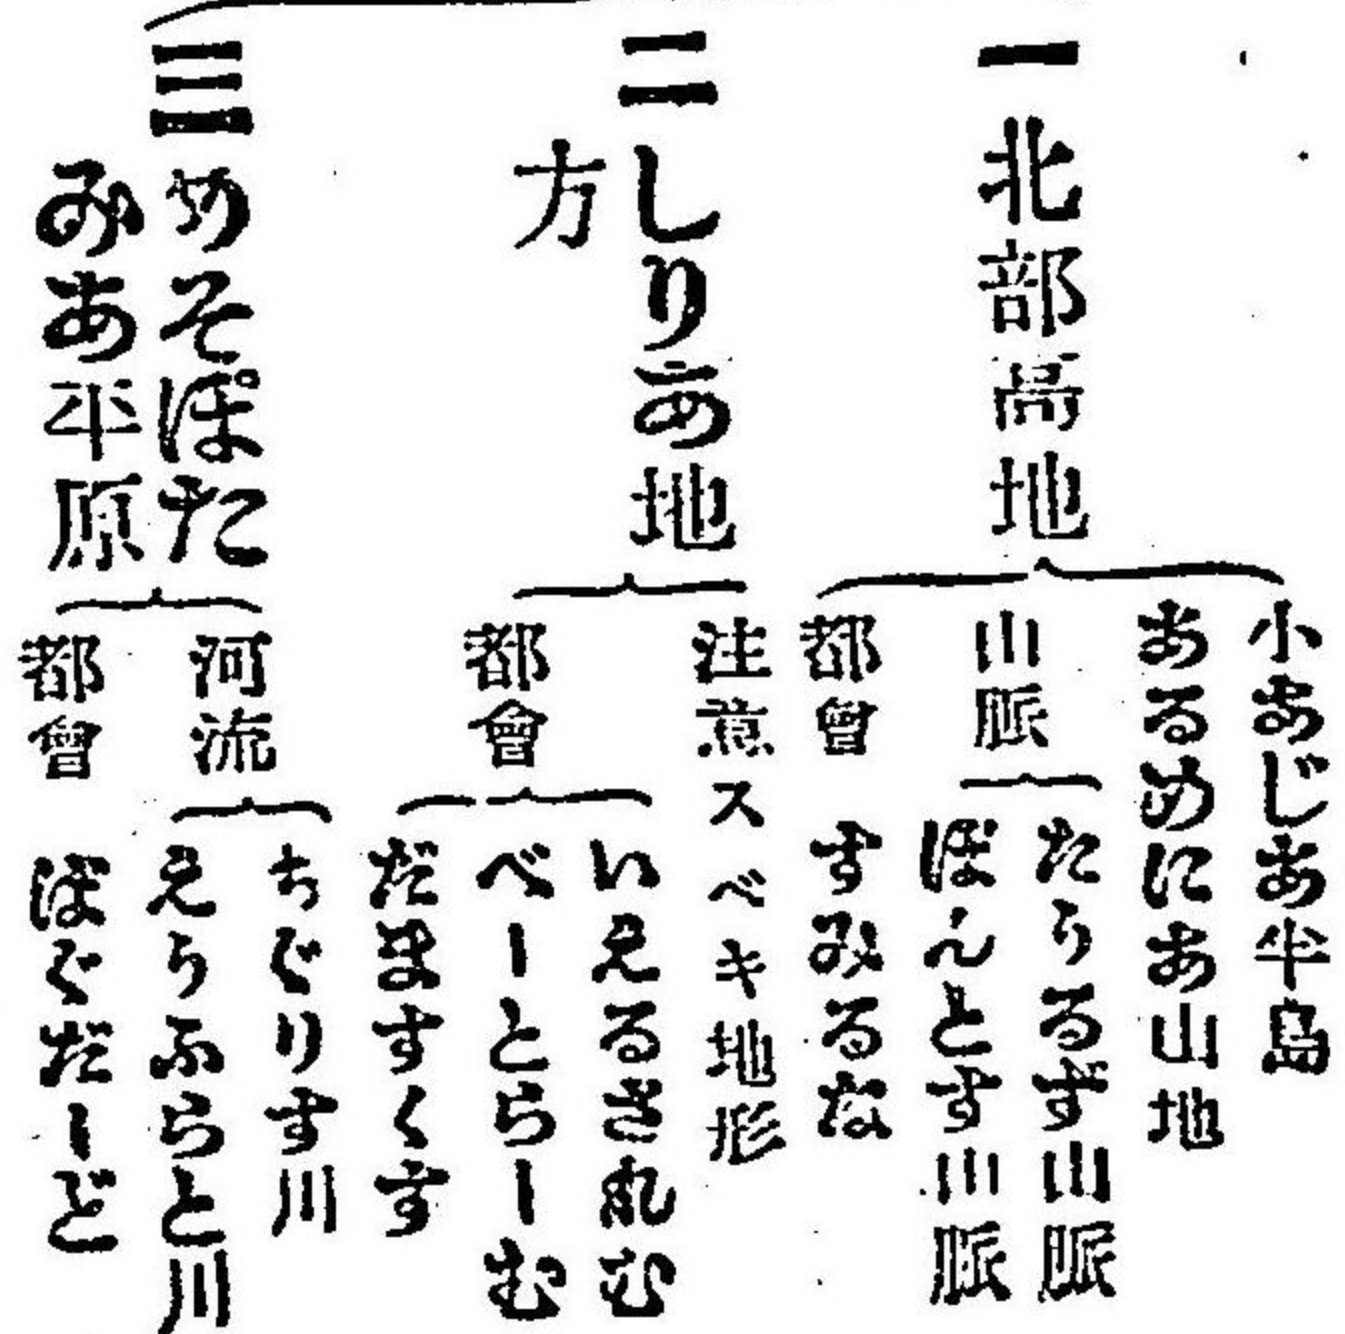 一北部高地
小あじあ半島
あるめにあ山地
山脈
たうるず山脈
ぽんとす山脈
都會
すみるな
二しりあ地
方
注意スベキ地形
都會
いえるされむ
べーとらーむ
だますくす
三めそぽた
みあ平原
河流
ちぐりす川
えうふらと川
都會
ばぐだーど